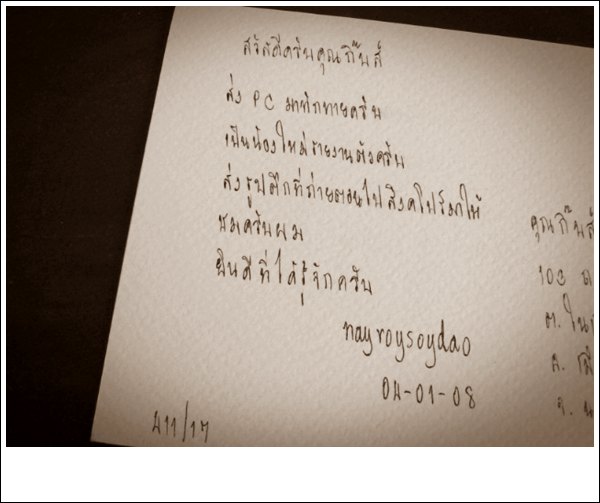 สวัสดีครับคุณกิ๊บส์
ส่ง PC มาทักทายครับ
เป็นน้องใหม่รายงานตัวครับ
ส่งรูปตึกที่ถ่ายตอนไปสิงคโปร์มาให้
ชมครับผม
ยินดีที่ได้รู้จักครับ
nayroysoydao
04-01-08
คุณกิ๊บส์
103 ถ
ต. ใน
อ. เมื
จ. น
411/17